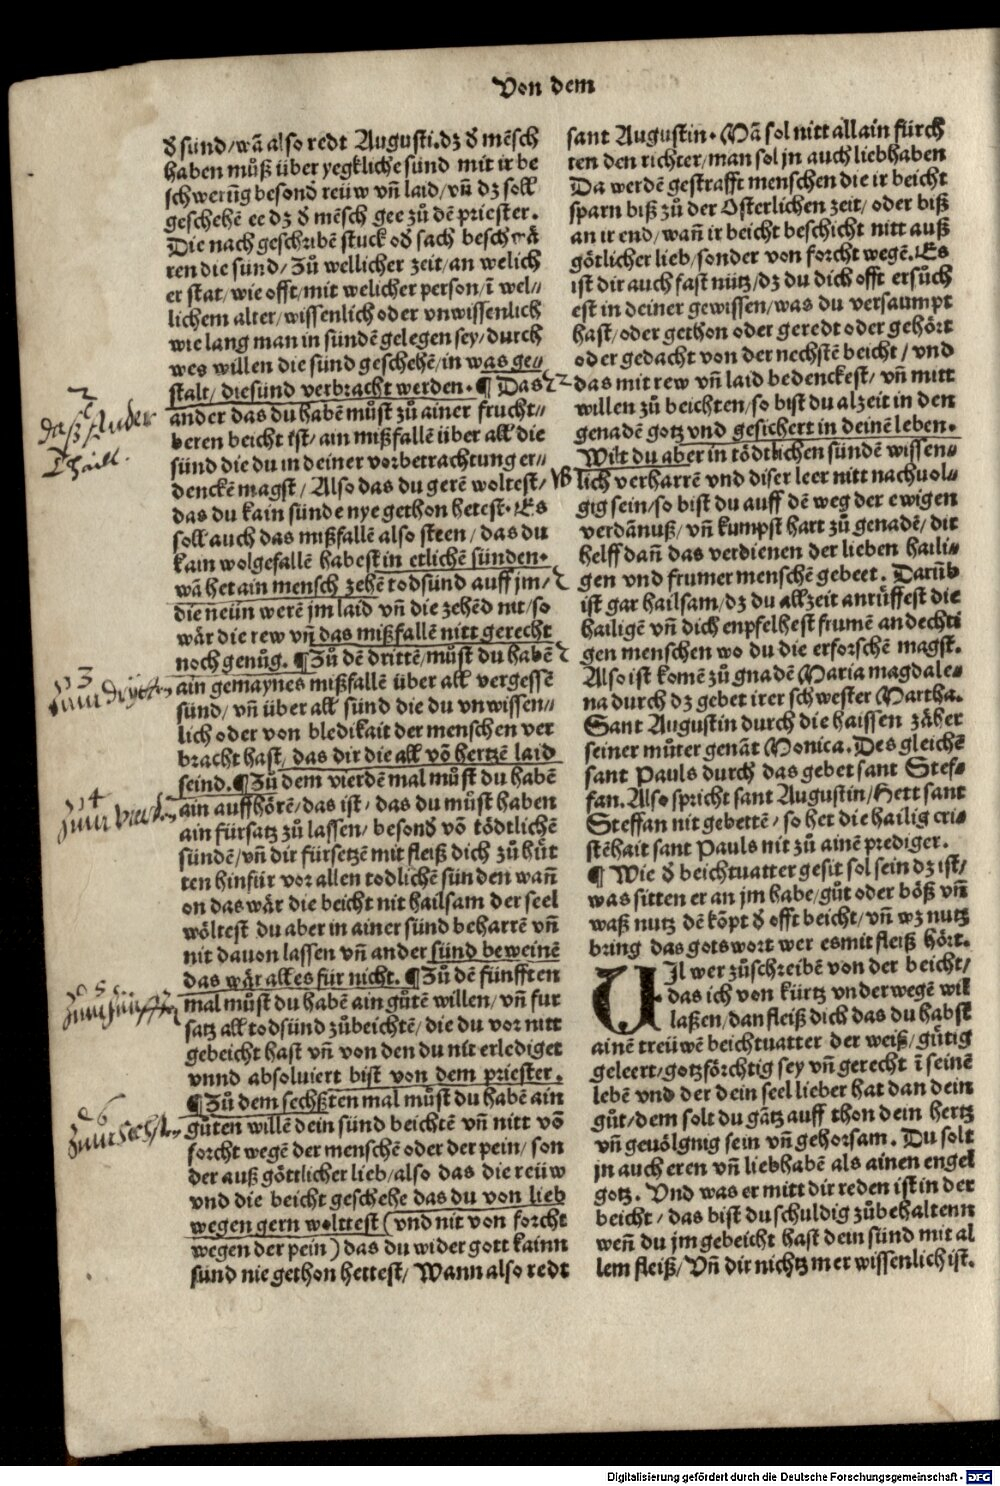 Von dem
ð sünd/wā also redt Augusti.dz ð mēsch
haben můß über yegkliche sünd mit ir be
schwerūg besonð reüw vñ laid/vñ dz soll
geschehē ee dz ð mēsch gee zů dē priester.
Die nach geschribē stuck oð sach beschwä
ren die sünd/Zů wellicher zeit/an welich
er stat/wie offt/mit welicher person/ī wel⸗
lichem alter/wissenlich oder vnwissenlich
wie lang man in sündē gelegen sey/durch
wes willen die sünd geschehē/in was ge⸗
stalt/diesünd verbracht werden.¶ Das
ander das du habē můst zů ainer frucht⸗
beren beicht ist/ain mißfallē über all die
sünd die du in deiner vorbetrachtung er⸗
denckē magst/Also das du gerē woltest/
das du kain sünde nye gethon hetest. Es
soll auch das mißfallē also steen/das du
kain wolgefallē habest in etlichē sünden.
wā het ain mensch zehē todsünd auff jm/
die neün werē jm laid vñ die zehēd nit/so
wär die rew vñ das mißfallē nitt gerecht
noch genůg. ¶Zů dē drittē/můst du habē
ain gemaynes mißfallē über all vergessē
sünd/vñ über all sünd die du vnwissen⸗
lich oder von bledikait der menschen ver
bracht hast/das dir die all vō hertzē laid
seind.¶Zů dem vierdē mal můst du habē
ain auffhörē/das ist/das du můst haben
ain fürsatz zů lassen/besonð vō tödtlichē
sündē/vñ dir fürsetzē mit fleiß dich zů hüt
ten hinfür vor allen todlichē sünden wañ
on das wär die beicht nit hailsam der seel
wöltest du aber in ainer sünd beharrē vñ
nit dauon lassen vñ ander sünd beweinē
das wär alles für nicht. ¶Zů dē fünfften
mal můst du habē ain gůtē willen/vñ für
satz all todsünd zůbeichtē/die du vor nitt
gebeicht hast vñ von den du nit erlediget
vnnd absoluiert bist von dem priester.
¶Zů dem sechßten mal můst du habē ain
gůten willē dein sünd beichtē vñ nitt vō
forcht wegē der menschē oder der pein/son
der auß göttlicher lieb/also das die reüw
vnd die beicht geschehe das du von lieb
wegen gern wolttest (vnd nit von forcht
wegen der pein) das du wider gott kainn
sünd nie gethon hettest/Wann also redt
2
daß Ander
Thaill.
3
zum drytten
4
zum vierden
5
zum fünfften
6
zum sechsten
sant Augustin. Mā sol nitt allain fürch
ten den richter/man sol jn auch liebhaben
Da werdē gestrafft menschen die ir beicht
sparn biß zů der Osterlichen zeit/oder biß
an ir end/wañ ir beicht beschicht nitt auß
götlicher lieb/sonder von forcht wegē. Es
ist dir auch fast nütz/dz du dich offt ersůch
est in deiner gewissen/was du versaumpt
hast/oder gethon oder geredt oder gehört
oder gedacht von der nechstē beicht/vnd
das mit rew vñ laid bedenckest/vñ mitt
willen zů beichten/so bist du alzeit in den
genadē gotz vnd gesichert in deinē leben.
Wilt du aber in tödtlichen sündē wissen⸗
lich verharrē vnd diser leer nitt nachuol⸗
gig sein/so bist du auff dē weg der ewigen
verdānuß/vñ kumpst hart zů genadē/dir
helff dañ das verdienen der lieben haili⸗
gen vnd frumer menschē gebeet. Darūb
ist gar hailsam/dz du allzeit anrüffest die
hailigē vñ dich enpfelhest frumē andechti
gen menschen wo du die erforschē magst.
Also ist komē zů gnadē Maria magdale⸗
na durch dz gebet irer schwester Martha.
Sant Augustin durch die haissen zäher
seiner můter genāt Monica. Des gleichē
sant Pauls durch das gebet sant Stef⸗
fan. Also spricht sant Augustin/Hett sant
Steffan nit gebettē/so het die hailig cri⸗
stēhait sant Pauls nit zů ainē prediger.
¶ Wie ð beichtuatter gesit sol sein dz ist/
was sitten er an jm habe/gůt oder böß vñ
waß nutz dē kōpt ð offt beicht/vñ wz nutz
bring das gotswort wer es mit fleiß hört.
Uil wer zůschreibē von der beicht/
das ich von kürtz vnderwegē wil
laßen/dan fleiß dich das du habst
ainē treüwē beichtuatter der weiß/gütig
geleert/gotzförchtig sey vñ gerecht ī seinē
lebē vnd der dein seel lieber hat dan dein
gůt/dem solt du gātz auff thon dein hertz
vñ geuölgnig sein vñ gehorsam. Du solt
jn auch eren vñ liebhabē als ainen engel
gotz. Vnd was er mitt dir reden ist in der
beicht/das bist du schuldig zůbehaltenn
weñ du jm gebeicht hast dein sünd mit al
lem fleiß/Vñ dir nichtz mer wissenlich ist.
Digitalisierung gefördert durch die Deutsche Forschungsgemeinschaft - DFG